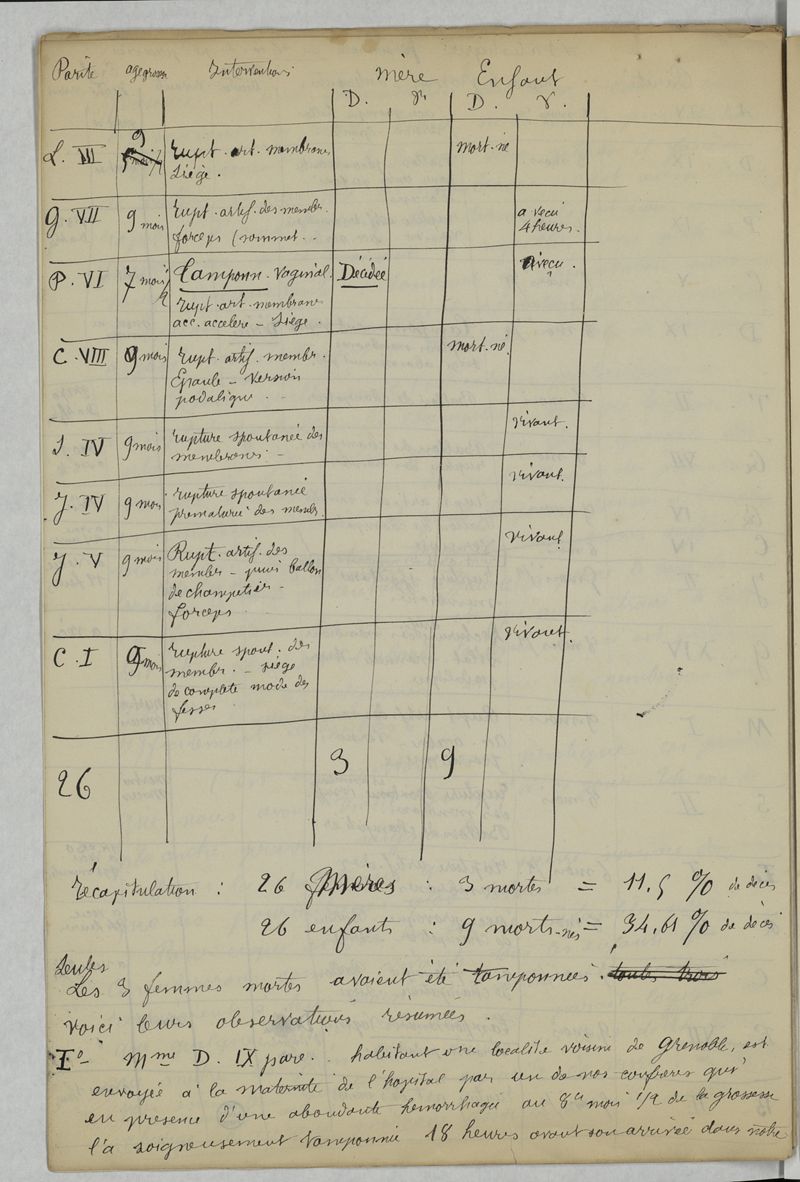 Parité age gross. Interventions Mère Enfant
D. V. D. V.
L. VIII 9 Rupt. art. membranes mort-né
Siège.
G. VII 9 mois Rupt. artif. des membr. a vécu
forceps (sommet.. 4 heures.
P. VI 7 mois 1/2 Tamponn. vaginal. Décédée vécu.
Rupt. art. membranes
acc. accéléré - Siège.
C. VIII 9 mois Rupt. artif. membr. mort-né.
Epaule - version
podalique.
J. IV 9 mois rupture spontanée des vivant.
membranes -
J. IV 9 mois rupture spontanée vivant.
prematurée des membr.
J. V 9 mois Rupt. artif. des vivant
membr - puis ballon
de champetier -
forceps
C. I 9 mois rupture spont. des vivant.
membr. - siège
décomplété mode des
fesses
26 3 9
Récapitulation : 26 Mères : 3 mortes = 11.5 % de décès
26 enfants : 9 morts-nés = 34.61 % de décès
Seules
Les 3 femmes mortes avaient été tamponnées. toutes trois
voici leurs observations résumées.
I° - Mme D. IX pare. habitant une localité voisine de Grenoble, est
envoyée à la maternité de l'hopital par un de nos confrères qui
en présence d'une abondante hémorrhagie au 8e mois 1/2 de la grossesse
l'a soigneusement tamponnée 18 heures avant son arrivée dans notre